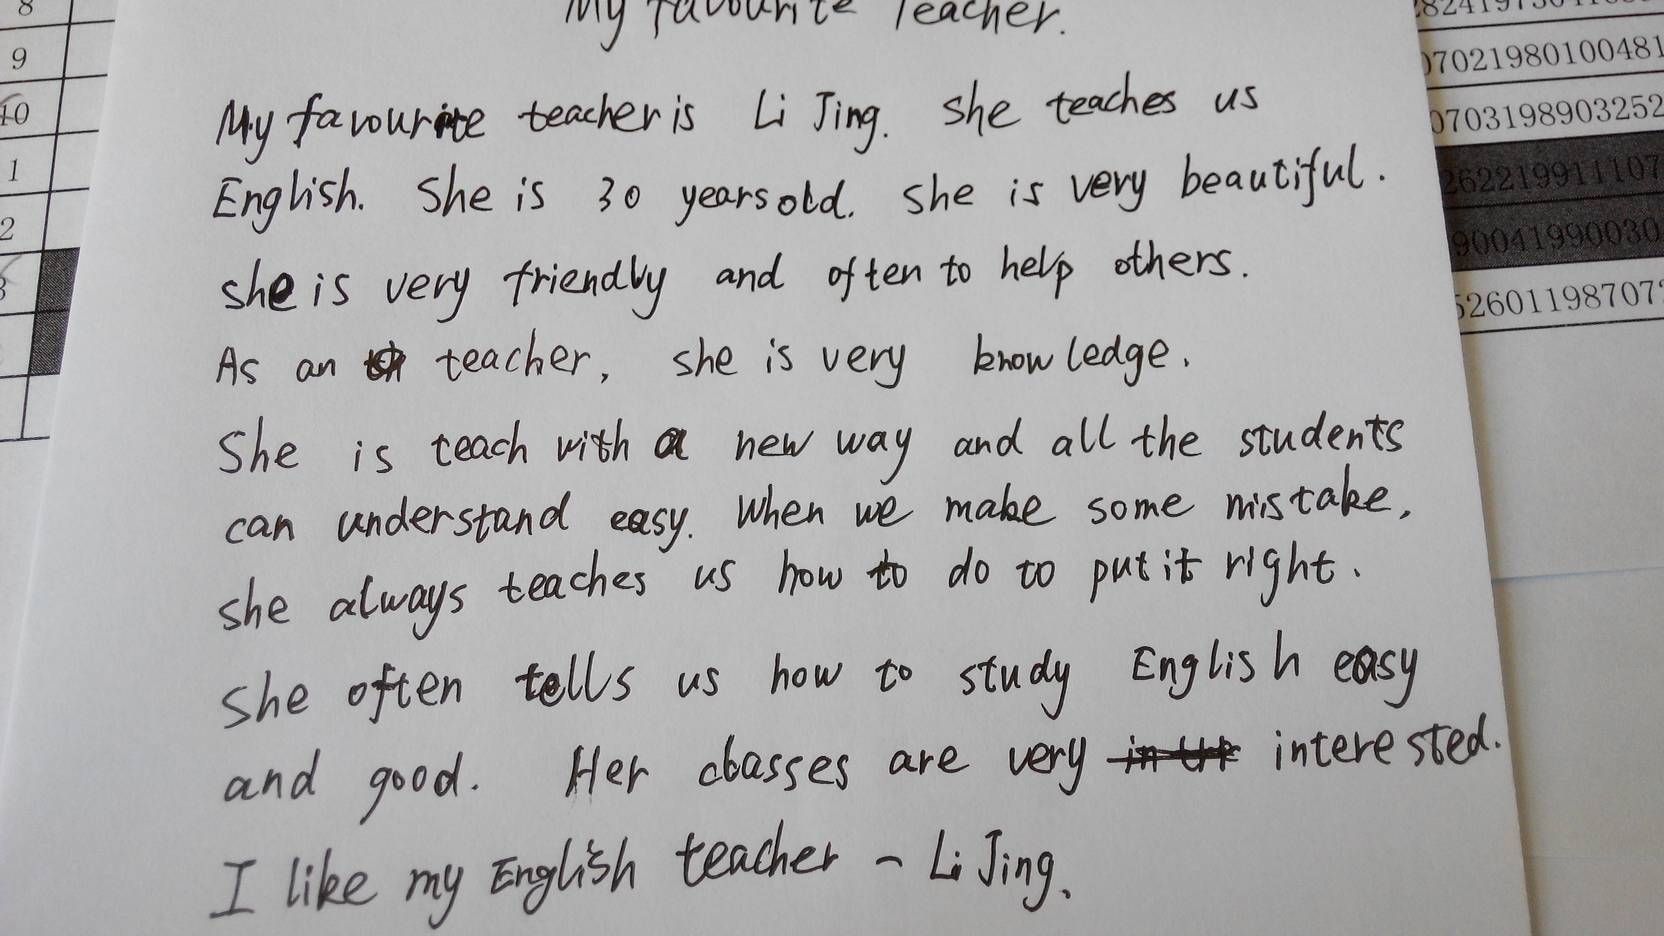 My favourite Teacher.
My favourite teacher is Li Jing. She teaches us
English. She is 30 years old. She is very beautiful.
She is very friendly and often to help others.
As an teacher, she is very knowledge.
She is teach with a new way and all the students
can understand easy. When we make some mistake,
she always teaches us how to do to put it right.
She often tells us how to study English easy
and good. Her classes are very interested.
I like my English teacher - Li Jing.
8
9
10
1
2
07021980100481
0703198903252
2622199111107
90041990030
5260119870